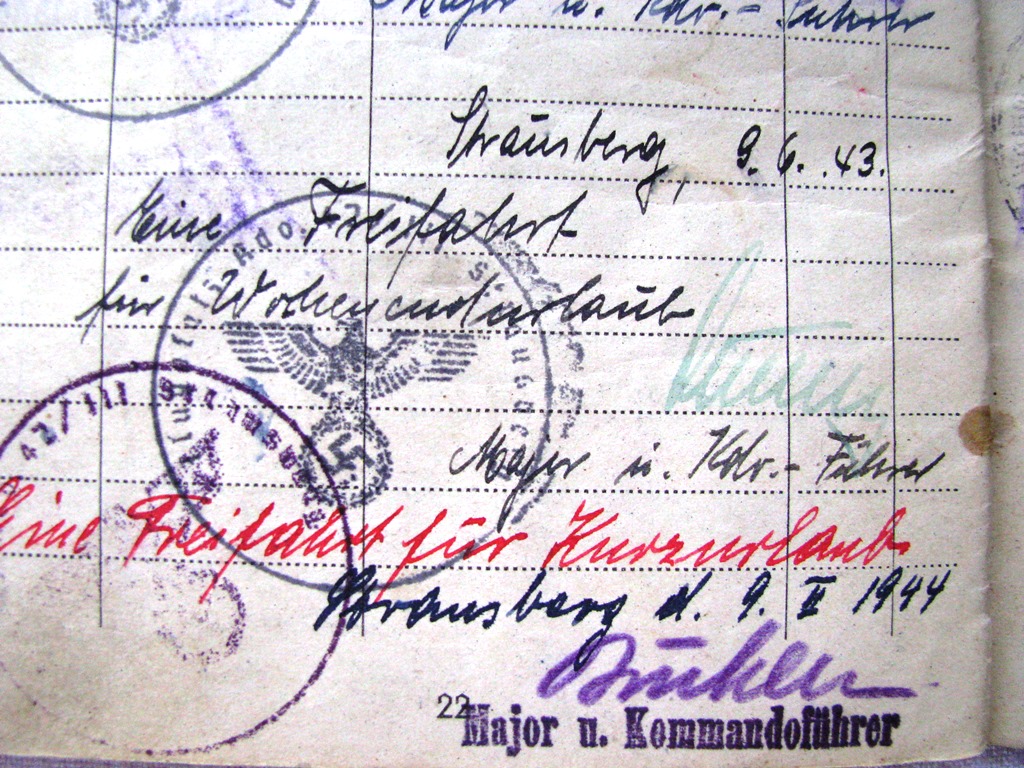 Major u. Kdr.-Führer
Strausberg, 9.6.43.
Eine Freifahrt
für Wochenendurlaub
Major u. Kdr.-Führer
42/III Strausberg
Eine Freifahrt für Kurzurlaub
Strausberg d. 9. II 1944
22
Major u. Kommandoführer